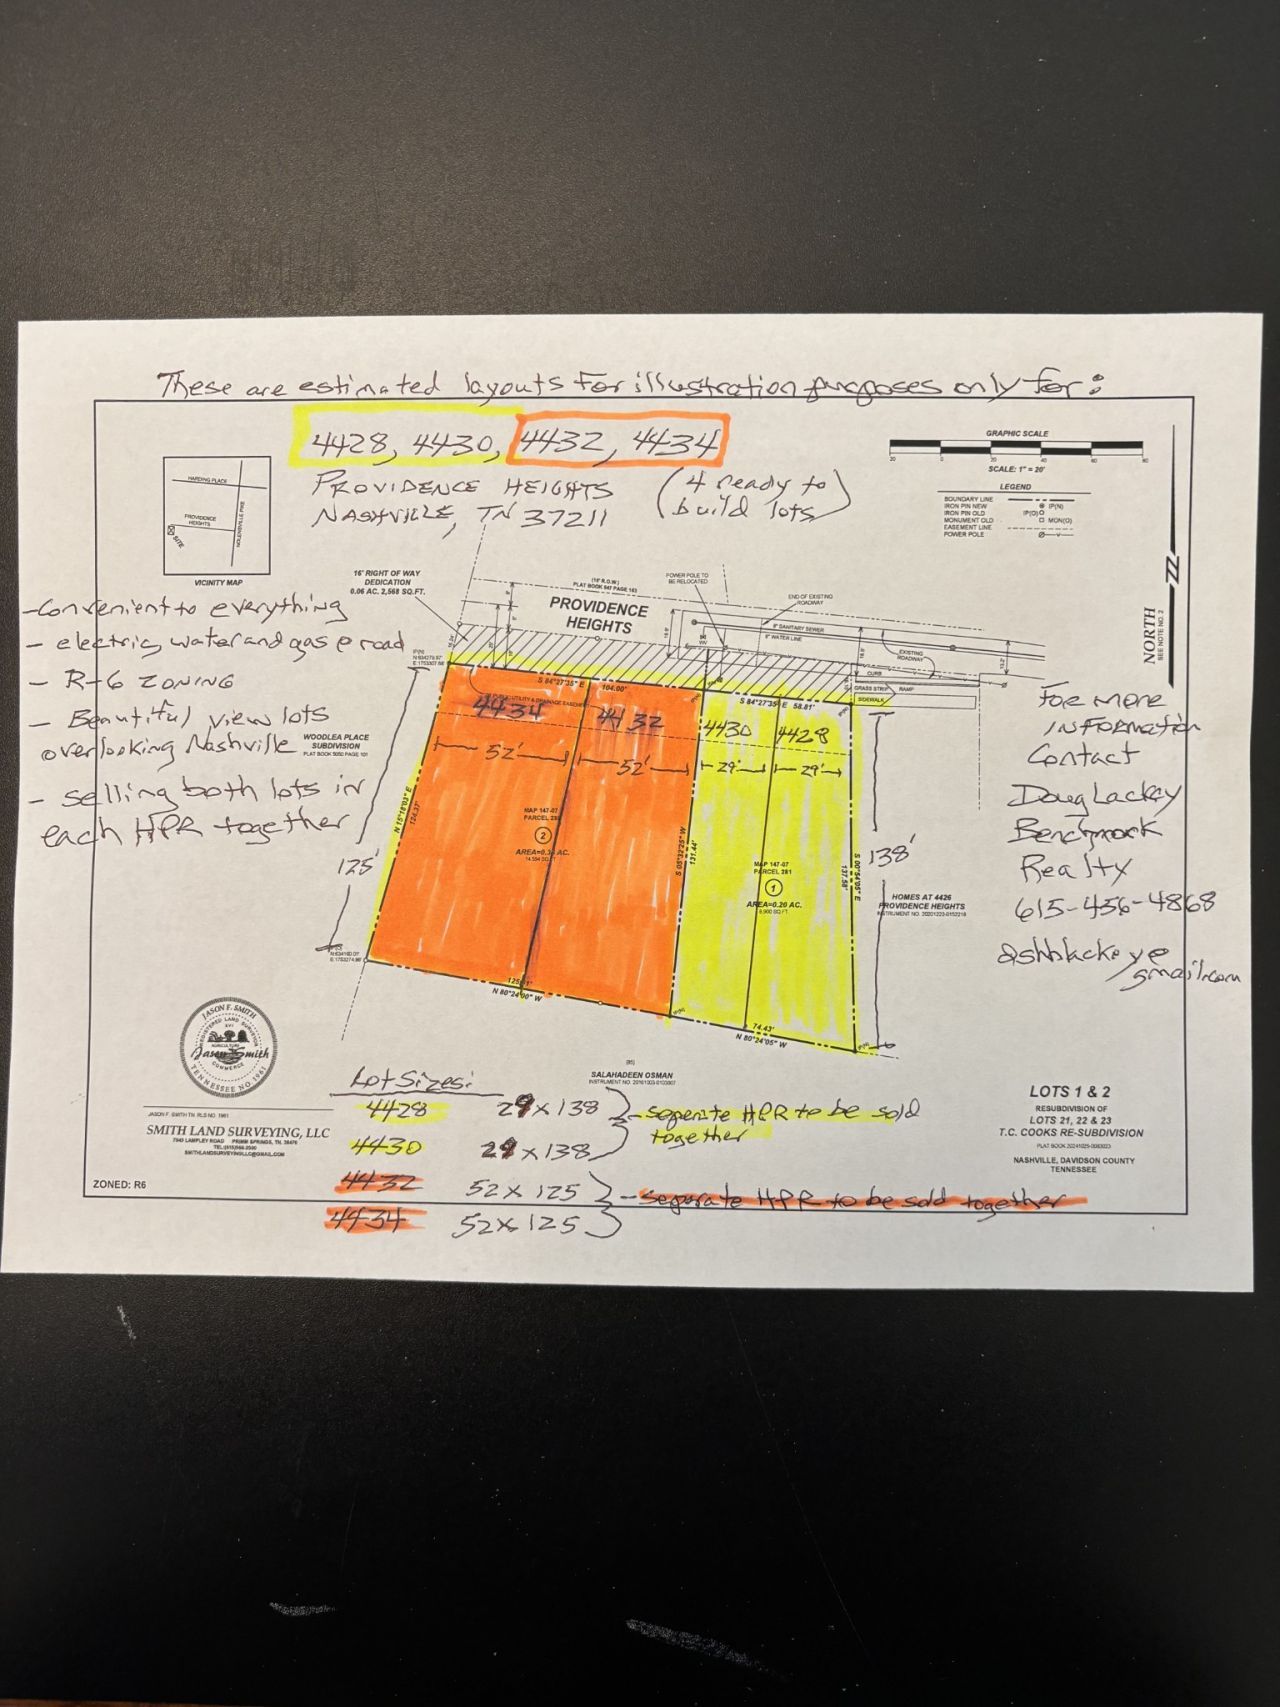 These are estimated layouts for illustration purposes only for:
4428, 4430, 4432, 4434
PROVIDENCE HEIGHTS
NASHVILLE, TN 37211
(4 ready to
build lots)
GRAPHIC SCALE
SCALE: 1" = 20'
LEGEND
BOUNDARY LINE
IRON PIN NEW IP(N)
IRON PIN OLD IP(O)
MONUMENT OLD MON(O)
EASEMENT LINE
POWER POLE
HARDING PLACE
PROVIDENCE
HEIGHTS
NOLENSVILLE PIKE
SITE
VICINITY MAP
NORTH
SEE NOTE NO. 2
16' RIGHT OF WAY
DEDICATION
0.06 AC. 2,568 SQ.FT.
PLAT BOOK 547 PAGE 163
POWER POLE TO
BE RELOCATED
END OF EXISTING
ROADWAY
PROVIDENCE
HEIGHTS
8" SANITARY SEWER
6" WATER LINE
EXISTING
ROADWAY
CURB
GRASS STRIP
RAMP
SIDEWALK
- Convenient to everything
- electric, water and gas @ road
- R-6 ZONING
- Beautiful view lots
overlooking Nashville
- selling both lots in
each HPR together
WOODLEA PLACE
SUBDIVISION
PLAT BOOK 5050 PAGE 101
S 84°27'35" E 104.00'
S 84°27'35" E 58.81'
4434
4432
4430
4428
52'
52'
29'
29'
N 15°18'03" E
124.37'
125'
MAP 147-07
2
S 05°32'25" W
131.44'
MAP 147-07
PARCEL 281
1
AREA=0.20 AC.
S 00°54'05" E
137.58'
138'
HOMES AT 4426
PROVIDENCE HEIGHTS
N 80°24'00" W
74.43'
N 80°24'05" W
SALAHADEEN OSMAN
For more
INFORMATION
Contact
Doug Lackey
Benchmark
Realty
615-456-4868
dshblackey@
gmail.com
JASON F. SMITH
REGISTERED LAND SURVEYOR
XVI
AGRICULTURE
Jason Smith
COMMERCE
TENNESSEE NO 1961
JASON F. SMITH TN. RLS NO. 1961
SMITH LAND SURVEYING, LLC
SMITHLANDSURVEYINGLLC@GMAIL.COM
ZONED: R6
Lot Sizes:
4428 29 x 138
4430 29 x 138
- seperate HPR to be sold
together
4432 52 x 125
4434 52 x 125
- separate HPR to be sold together
LOTS 1 & 2
RESUBDIVISION OF
LOTS 21, 22 & 23
T.C. COOKS RE-SUBDIVISION
NASHVILLE, DAVIDSON COUNTY
TENNESSEE